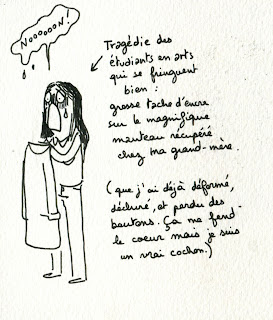 NOOOOOON!
Tragédie des
étudiants en arts
qui se fringuent
bien :
grosse tache d'encre
sur le magnifique
manteau récupéré
chez ma grand-mère.
(que j'ai déjà déformé,
déchiré, et perdu des
boutons. Ça me fend
le coeur mais je suis
un vrai cochon.)